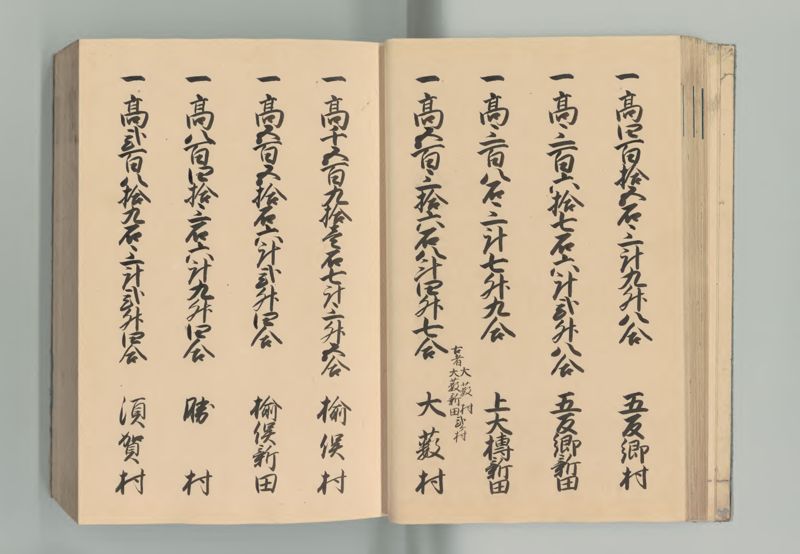 一高四百拾五石三斗九升八合 五反郷村
一高三百六拾七石六斗弐升八合 五反郷新田
一高三百八石三斗七升九合 上大榑新田
古者大藪村
大藪新田弐村
一高五百三拾六石八斗四升七合 大藪村
一高千五百九拾壱石七斗三升六合 楡俣村
一高五百五拾石六斗弐升四合 楡俣新田
一高八百四拾三石六斗九升四合 勝村
一高弐百八拾九石三斗弐升四合 須賀村